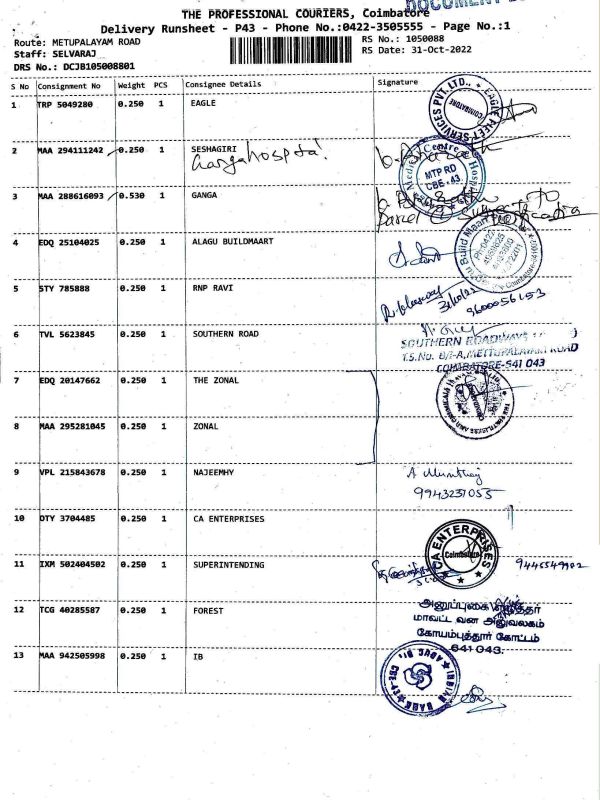 DOCUMENT
THE PROFESSIONAL COURIERS, Coimbatore
Delivery Runsheet - P43 - Phone No.:0422-3505555 - Page No.:1
Route: METUPALAYAM ROAD
RS No.: 1050088
Staff: SELVARAJ
RS Date: 31-Oct-2022
DRS No.: DCJB105008801
S No Consignment No Weight PCS Consignee Details Signature
1 TRP 5049280 0.250 1 EAGLE
EAGLE FLEET SERVICES PVT. LTD., COIMBATORE
2 MAA 294111242 0.250 1 SESHAGIRI
Ganga hospital
Medical Centre
MTP RD
CBE-43
3 MAA 288616093 0.530 1 GANGA
4 EDQ 25104025 0.250 1 ALAGU BUILDMAART
Build Maart
Ph:0422
5 STY 785888 0.250 1 RNP RAVI
9600056153
6 TVL 5623845 0.250 1 SOUTHERN ROAD
SOUTHERN ROADWAYS
T.S.No. 8/1-A, METTUPALAYAM ROAD
COIMBATORE-641 043
7 EDQ 20147662 0.250 1 THE ZONAL
8 MAA 295281045 0.250 1 ZONAL
9 VPL 215843678 0.250 1 NAJEEMHY
9943231055
10 DTY 3704485 0.250 1 CA ENTERPRISES
CA ENTERPRISES
Coimbatore
11 IXM 502404502 0.250 1 SUPERINTENDING
9445549902
12 TCG 40285587 0.250 1 FOREST
அனுப்புகை எழுத்தர்
மாவட்ட வன அலுவலகம்
கோயம்புத்தூர் கோட்டம்
641 043.
13 MAA 942505998 0.250 1 IB
INDIAN BANK